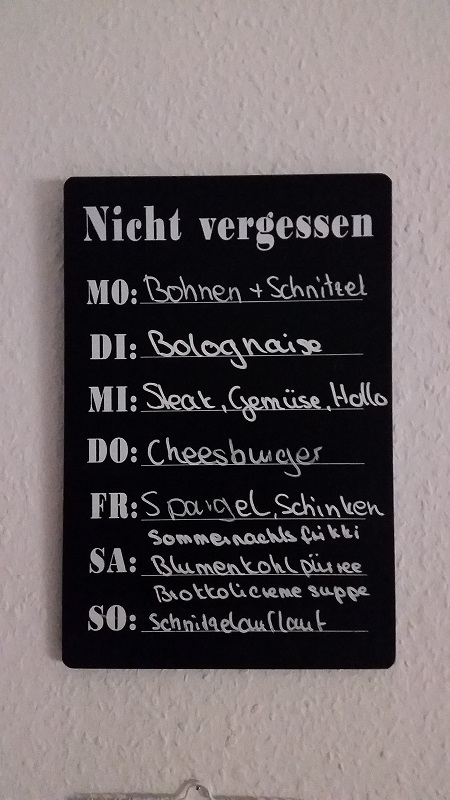 Nicht vergessen
MO: Bohnen + Schnitzel
DI: Bolognaise
MI: Steak, Gemüse, Hollo
DO: Cheesburger
FR: Spargel, Schinken
Sommernachts frikki
SA: Blumenkohl püree
Brokkolicreme suppe
SO: Schnitzelauflauf